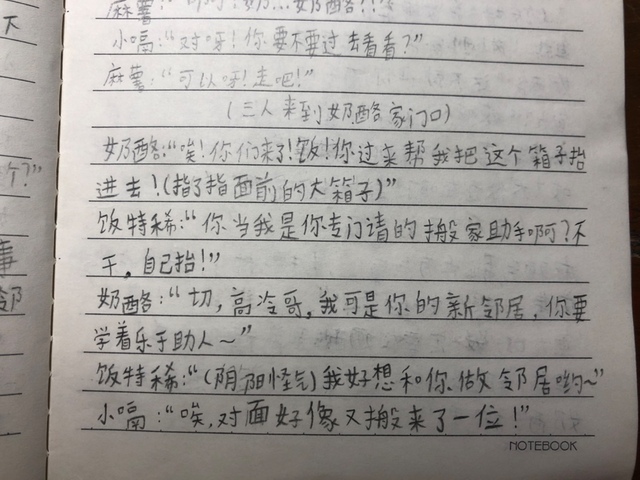 麻薯：“ 奶…奶酪？！”
小嗝：“对呀！你要不要过去看看？”
麻薯：“可以呀！走吧！”
（三人来到奶酪家门口）
奶酪：“唉！你们来了！饭！你过来帮我把这个箱子抬
进去！（指了指面前的大箱子）”
饭特稀：“你当我是你专门请的搬家助手啊？不
干。自己抬！”
奶酪：“切，高冷哥，我可是你的新邻居，你要
学着乐于助人～”
饭特稀：“（阴阳怪气）我好想和你做邻居哟～”
小嗝：“唉，对面好像又搬来了一位！”
NOTEBOOK
下
个？”
事
邻